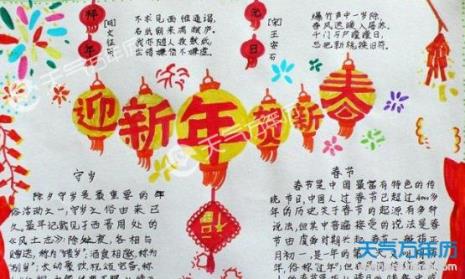 拜年
[明]
文征明
不求见面惟通谒,
名纸朝来满敝庐。
我亦随人投数纸,
世情嫌简不嫌虚。
元日
[宋]
王安石
爆竹声中一岁除,
春风送暖入屠苏。
千门万户曈曈日,
总把新桃换旧符。
迎新年贺新春
守岁
除夕守岁是最重要的年
俗活动之一,守岁之俗由来已
久。最早记载见于西晋周处的
《风土志》:除夕之夜,各相与
赠送,称为"馈岁";酒食相邀,称为
"别岁";长幼聚饮,祝颂完备,称
春节
春节是中国最富有特色的传
统节日,中国人过春节已超过4000多
年的历史,关于春节的起源有多种
说法,但其中普遍接受的说法是春
节由虞舜时期
月初一,是一年的
年,俗称"过年"
天气万年历